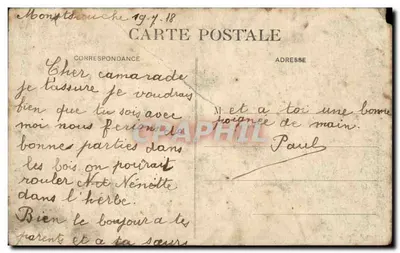 19.7.18
CARTE POSTALE
CORRESPONDANCE
ADRESSE
Cher camarade
je t'assure je voudrais
bien que tu sois avec
moi nous ferions de
bonnes parties dans
les bois on pourrait
rouler Nénette
dans l'herbe.
Bien le bonjour a tes
parents et a ta sœur
M et a toi une bonne
poignée de main.
Paul